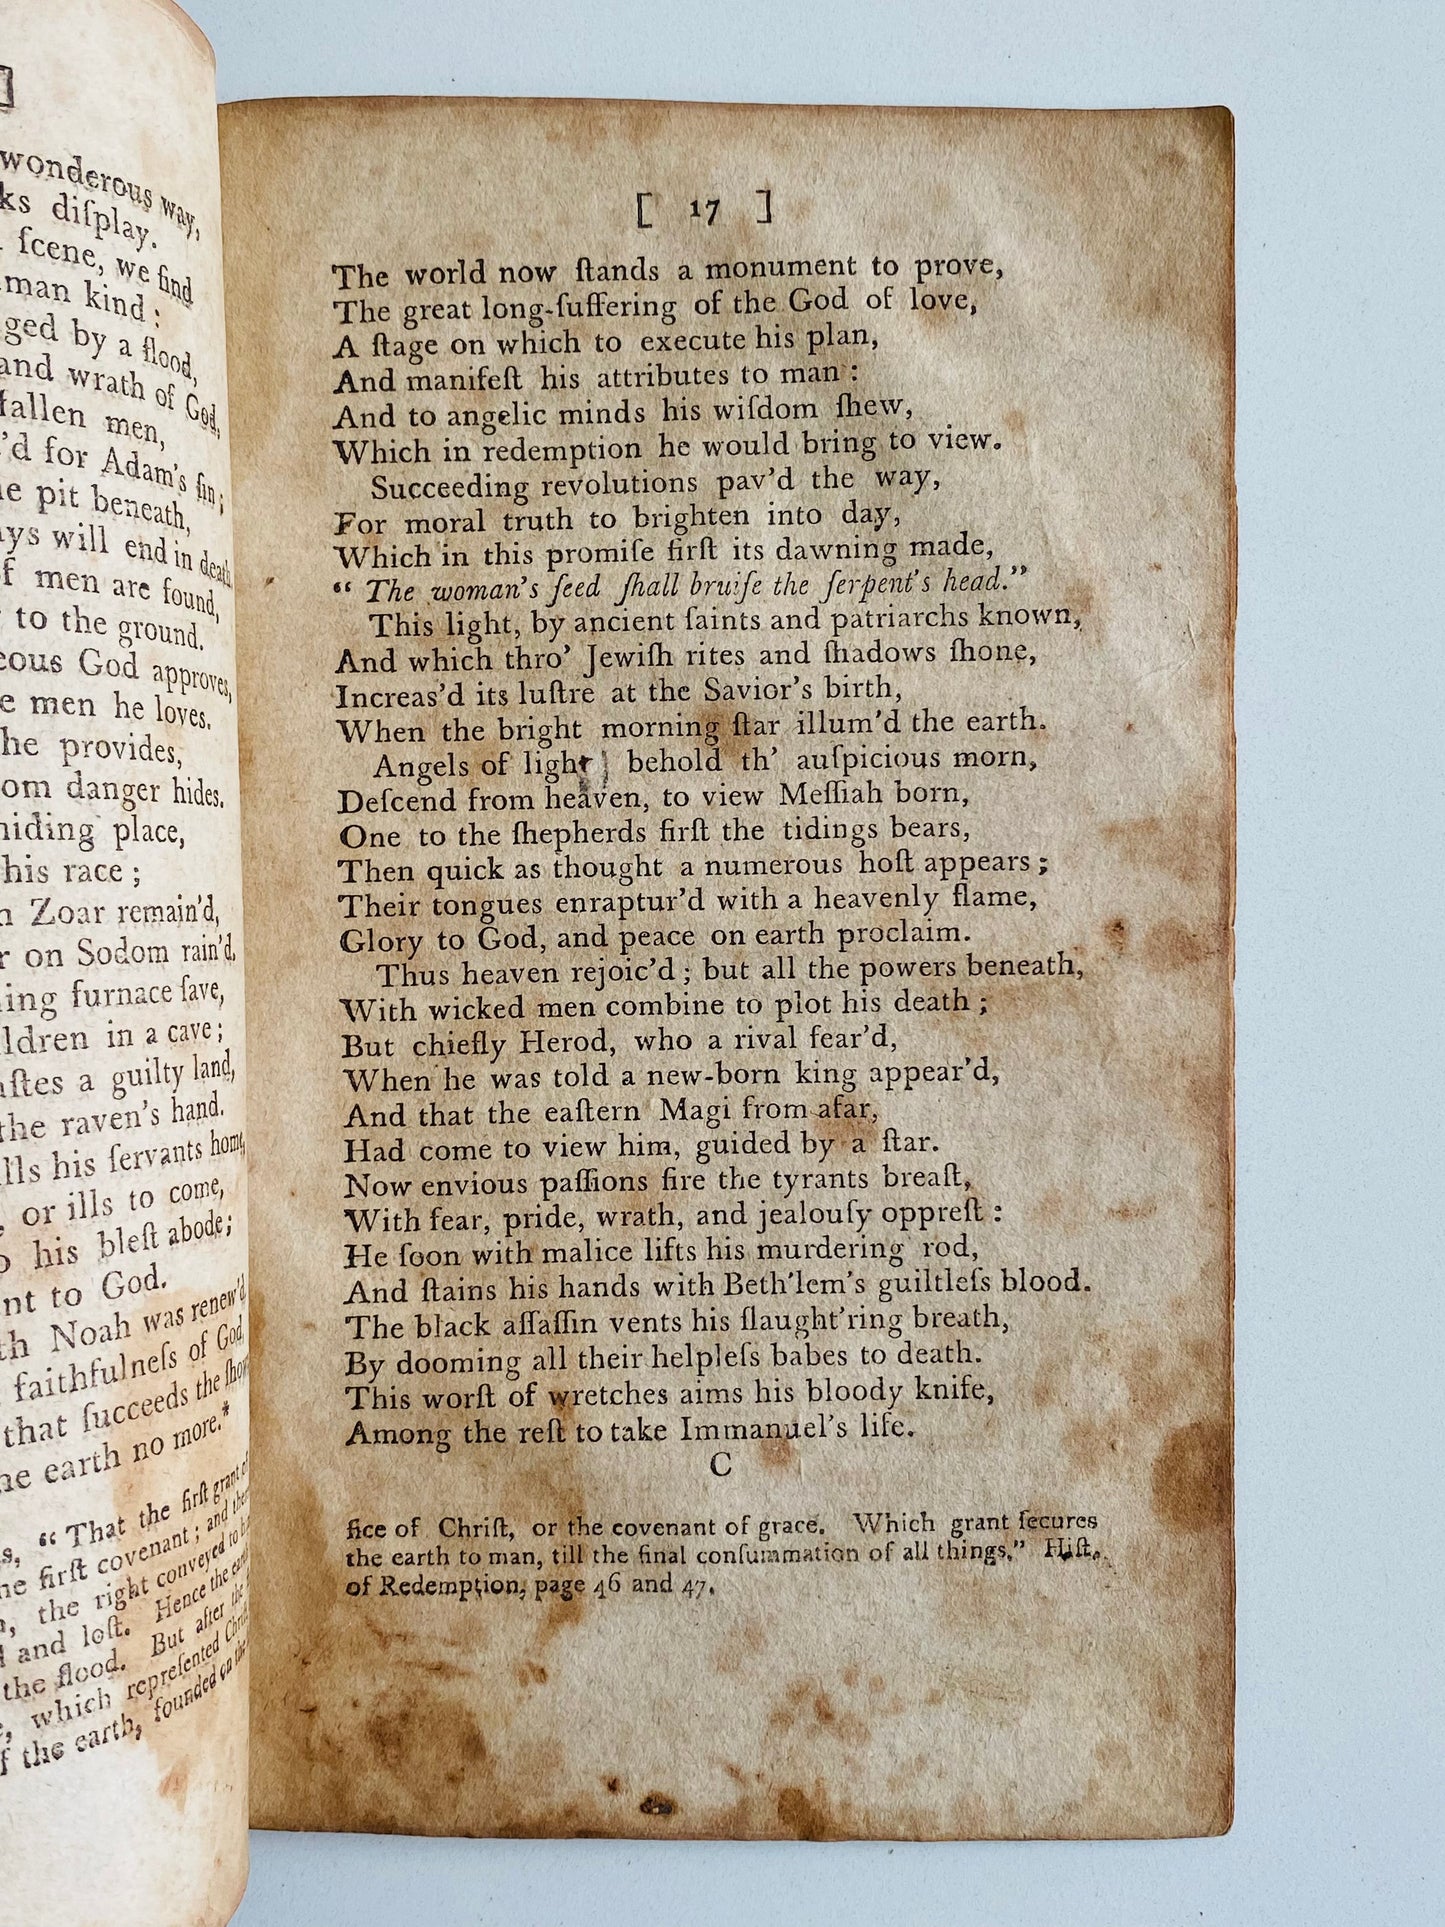 ]
wonderous way,
ks diſplay.
ſcene, we find
man kind:
ged by a flood,
and wrath of God,
fallen men,
'd for Adam's ſin;
e pit beneath,
ays will end in death
f men are found,
to the ground.
eous God approves,
e men he loves.
he provides,
om danger hides.
hiding place,
his race;
n Zoar remain'd,
r on Sodom rain'd.
ing furnace ſave,
ldren in a cave;
aſtes a guilty land,
the raven's hand.
lls his ſervants home,
, or ills to come,
o his bleſt abode;
nt to God.
th Noah was renew'd
faithfulneſs of God
that ſucceeds the ſhow
he earth no more.*
s, “That the firſt grant of
he firſt covenant; and then
, the right conveyed to
and loſt. Hence the earth
the flood. But after the
, which repreſented Chriſt
f the earth, founded on the
[ 17 ]
The world now ſtands a monument to prove,
The great long-ſuffering of the God of love,
A ſtage on which to execute his plan,
And manifeſt his attributes to man:
And to angelic minds his wiſdom ſhew,
Which in redemption he would bring to view.
Succeeding revolutions pav'd the way,
For moral truth to brighten into day,
Which in this promiſe firſt its dawning made,
“ The woman's ſeed ſhall bruiſe the ſerpent's head.”
This light, by ancient ſaints and patriarchs known,
And which thro' Jewiſh rites and ſhadows ſhone,
Increas'd its luſtre at the Savior's birth,
When the bright morning ſtar illum'd the earth.
Angels of light behold th' auſpicious morn,
Deſcend from heaven, to view Meſſiah born,
One to the ſhepherds firſt the tidings bears,
Then quick as thought a numerous hoſt appears;
Their tongues enraptur'd with a heavenly flame,
Glory to God, and peace on earth proclaim.
Thus heaven rejoic'd; but all the powers beneath,
With wicked men combine to plot his death;
But chiefly Herod, who a rival fear'd,
When he was told a new-born king appear'd,
And that the eaſtern Magi from afar,
Had come to view him, guided by a ſtar.
Now envious paſſions fire the tyrants breaſt,
With fear, pride, wrath, and jealouſy oppreſt:
He ſoon with malice lifts his murdering rod,
And ſtains his hands with Beth'lem's guiltleſs blood.
The black aſſaſſin vents his ſlaught'ring breath,
By dooming all their helpleſs babes to death.
This worſt of wretches aims his bloody knife,
Among the reſt to take Immanuel's life.
C
fice of Chriſt, or the covenant of grace. Which grant ſecures
the earth to man, till the final conſummation of all things.” Hiſt.
of Redemption, page 46 and 47.